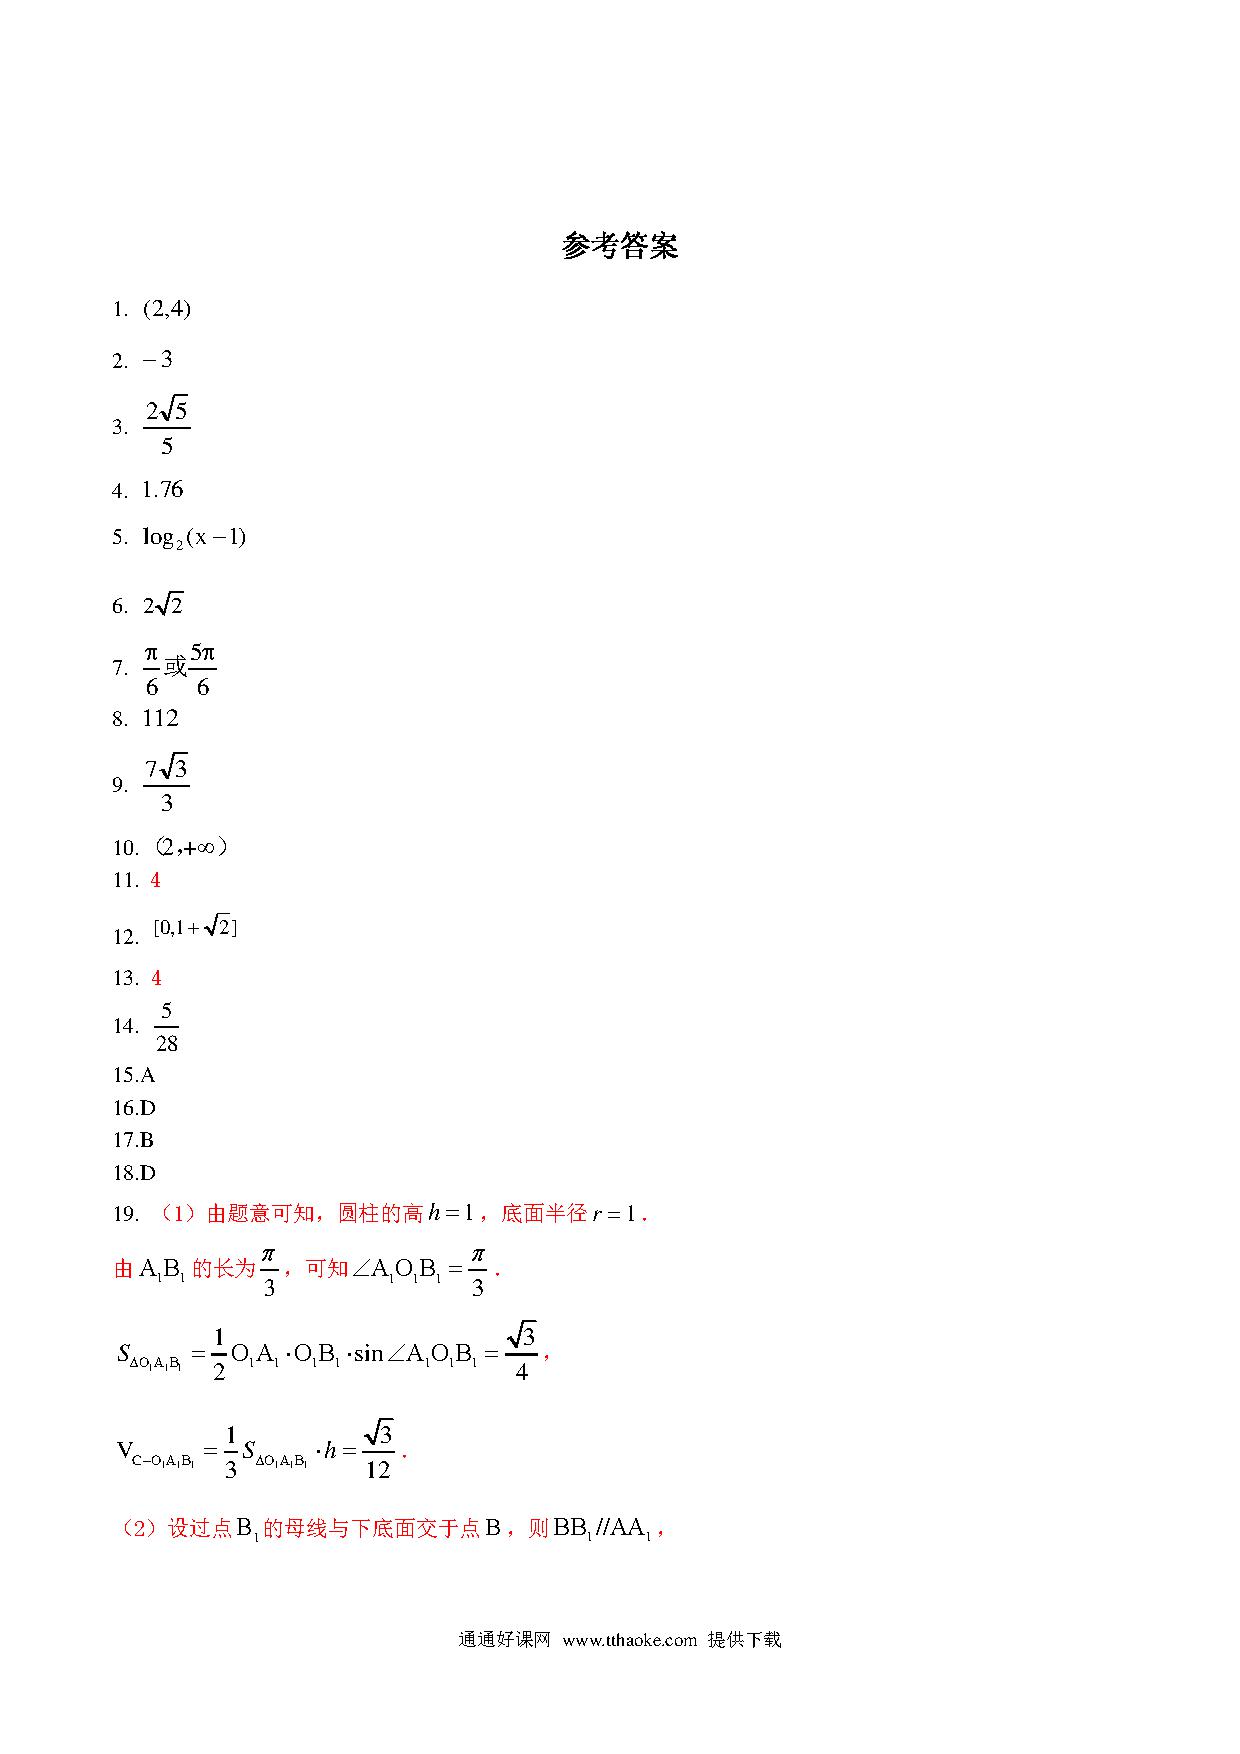 参考答案
1. (2,4)
2. −3
3. 2√5/5
4. 1.76
5. log₂(x−1)
6. 2√2
7. π/6或5π/6
8. 112
9. 7√3/3
10.（2,+∞）
11. 4
12. [0,1+√2]
13. 4
14. 5/28
15.A
16.D
17.B
18.D
19. （1）由题意可知，圆柱的高h=1，底面半径r=1．
由A₁B₁的长为π/3，可知∠A₁O₁B₁=π/3．
S_{ΔO₁A₁B₁}=1/2 O₁A₁·O₁B₁·sin∠A₁O₁B₁=√3/4，
V_{C−O₁A₁B₁}=1/3 S_{ΔO₁A₁B₁}·h=√3/12．
（2）设过点B₁的母线与下底面交于点B，则BB₁//AA₁，
通通好课网 www.tthaoke.com 提供下载